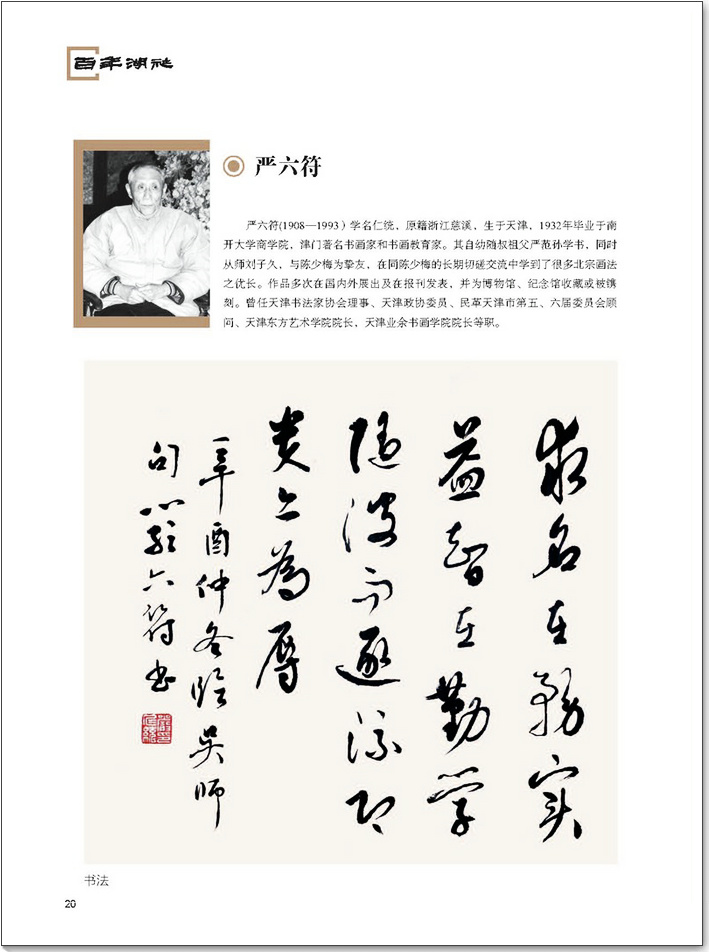 百年湖社
严六符
严六符(1908—1993）学名仁统，原籍浙江慈溪，生于天津，1932年毕业于南
开大学商学院，津门著名书画家和书画教育家。其自幼随叔祖父严范孙学书，同时
从师刘子久，与陈少梅为挚友，在同陈少梅的长期切磋交流中学到了很多北宗画法
之优长。作品多次在国内外展出及在报刊发表，并为博物馆、纪念馆收藏或被镌
刻。曾任天津书法家协会理事、天津政协委员、民革天津市第五、六届委员会顾
问、天津东方艺术学院院长，天津业余书画学院院长等职。
求名在務实
益智在勤学
随波而逐流
为辱
辛酉仲冬临吴师
句六符书
书法
20